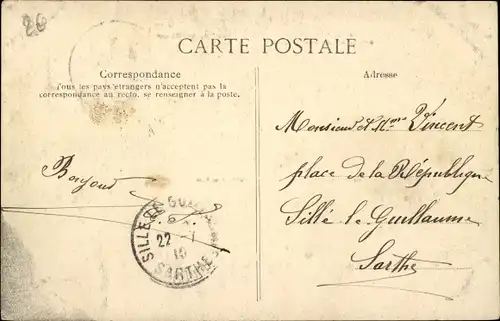 26
CARTE POSTALE
Correspondance
Tous les pays étrangers n'acceptent pas la
correspondance au recto. se renseigner à la poste.
Adresse
Monsieur et Mme Vincent
place de la République
Sillé le Guillaume
Sarthe
SILLE
22
SARTHE